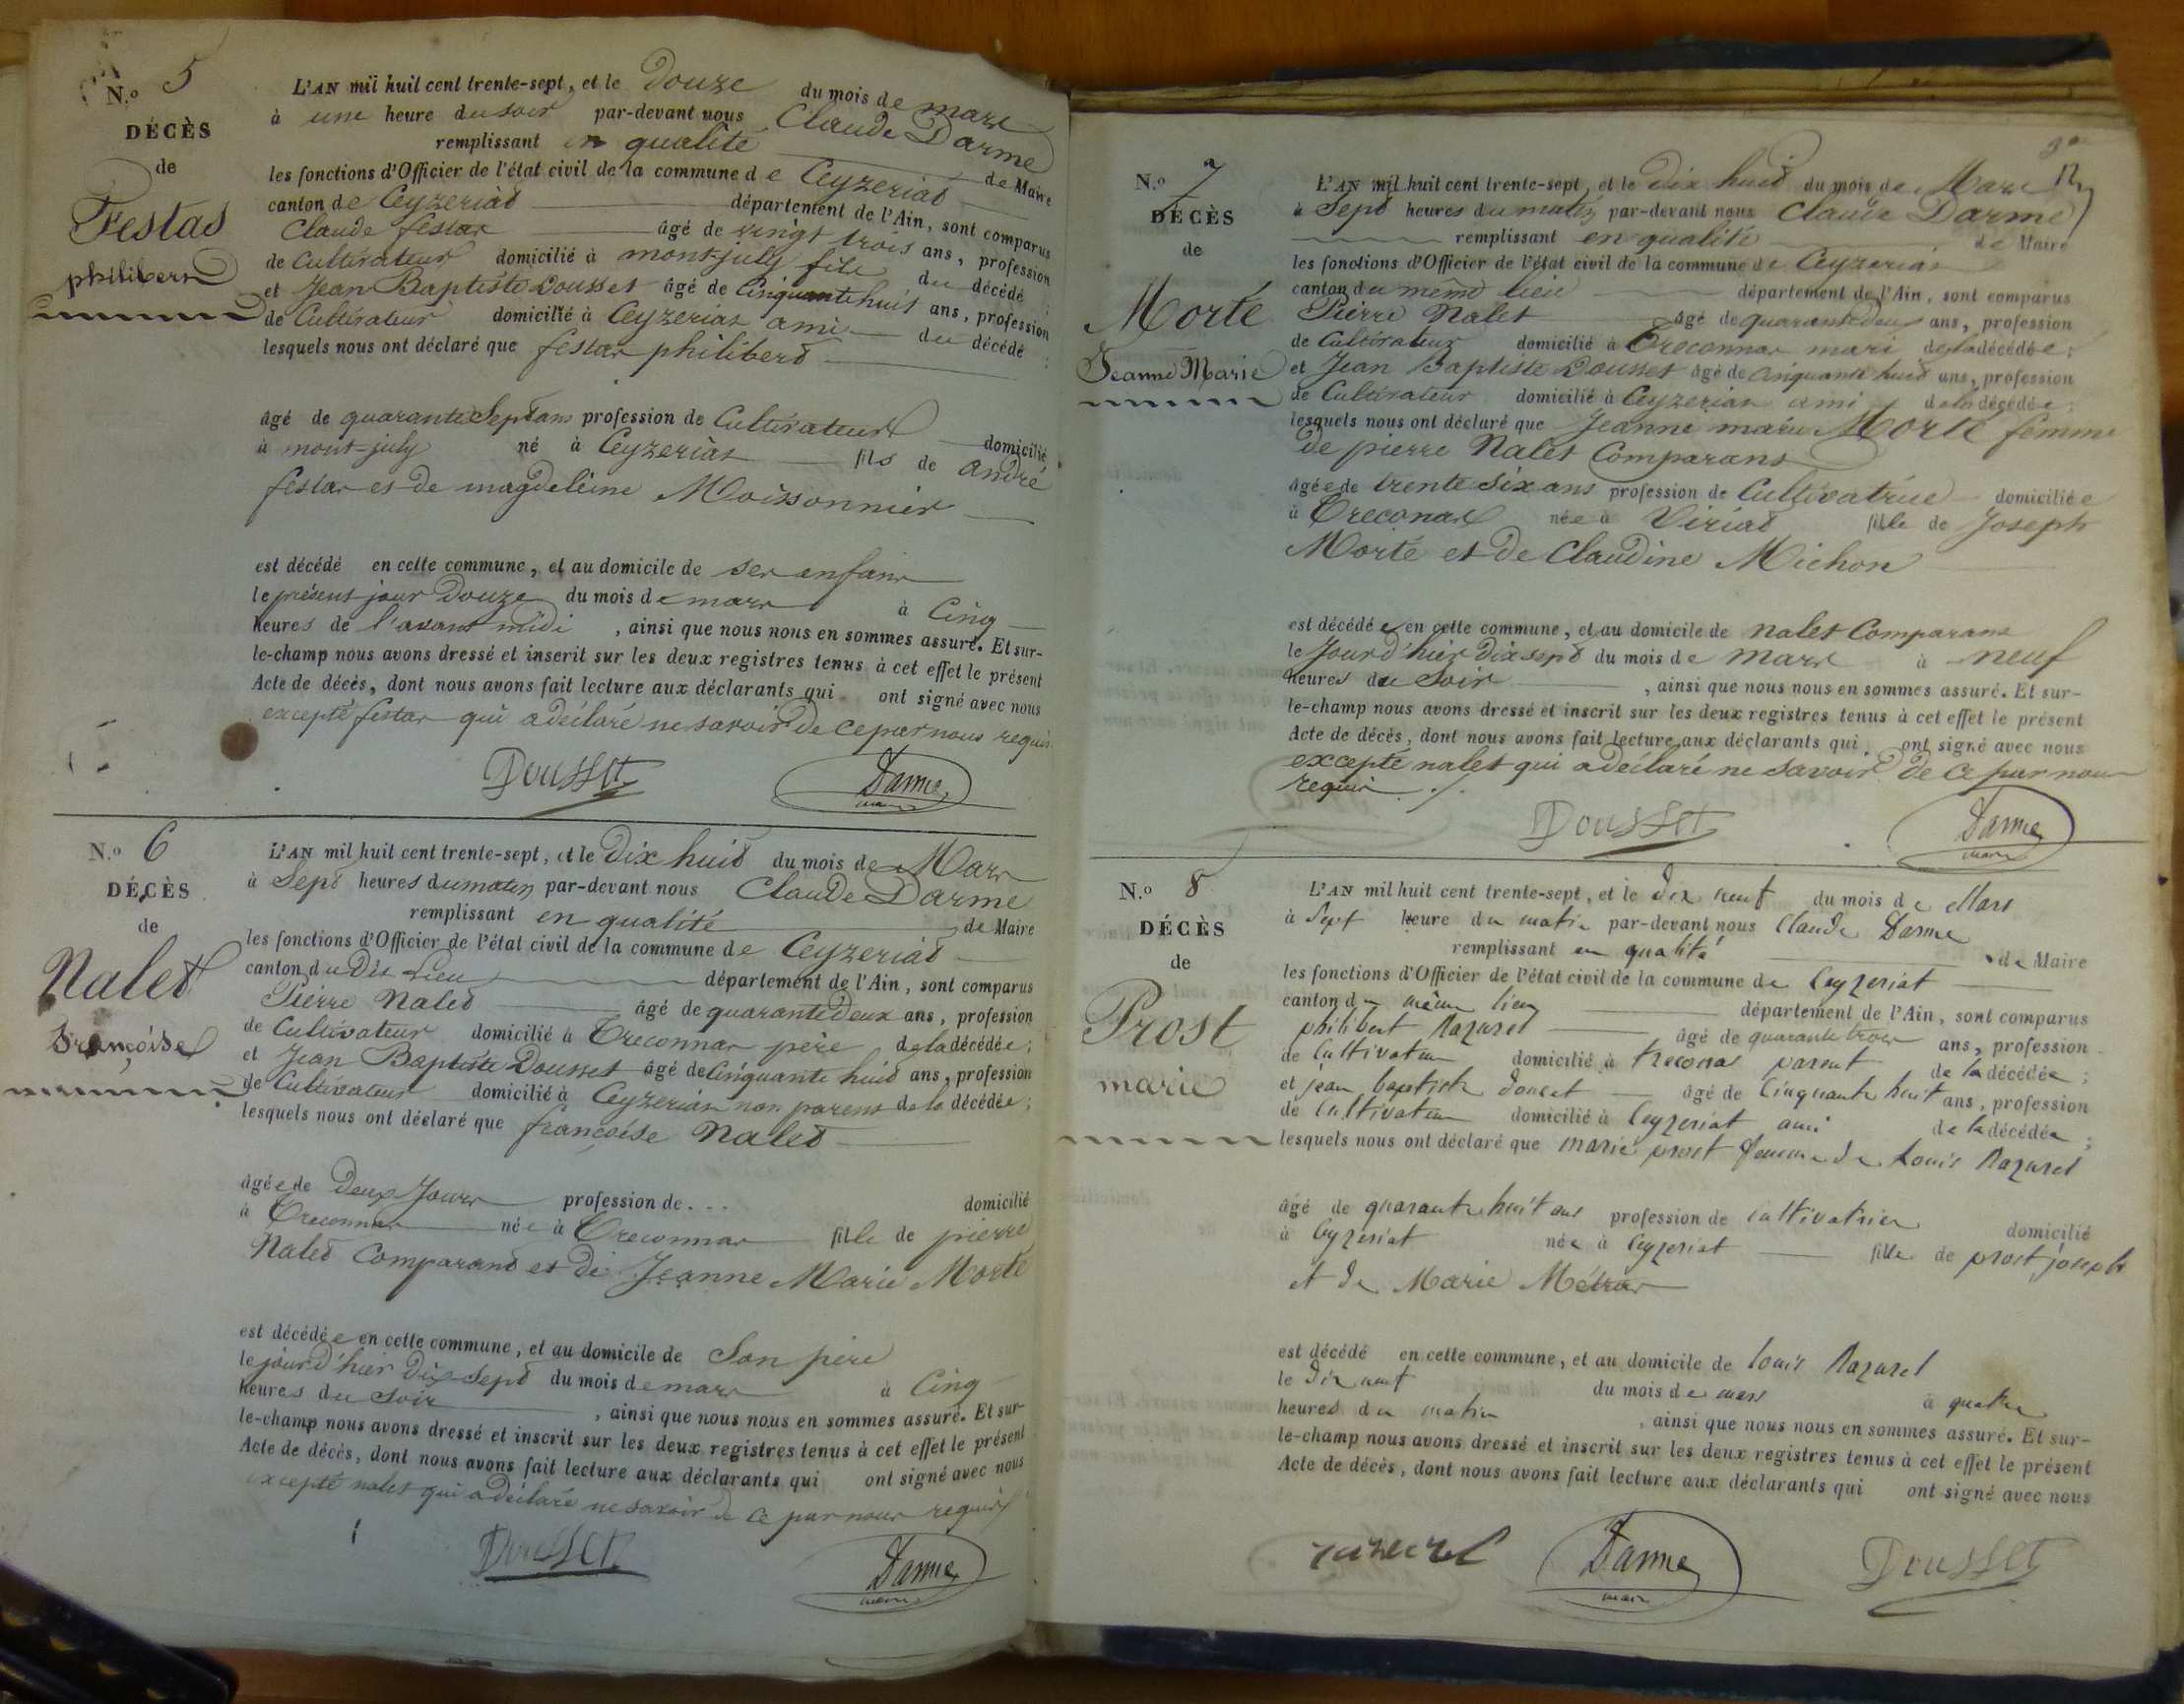 N.o 5
DÉCÈS
de
Festas
philibert
L'AN mil huit cent trente-sept, et le Douze du mois de mars
à une heure du soir par-devant nous Claude Darme
remplissant en qualité de Maire
les fonctions d'Officier de l'état civil de la commune de Ceyzeriat
canton de Ceyzeriat département de l'Ain, sont comparus
Claude festas âgé de vingt trois ans, profession
de Cultivateur domicilié à mont-july fils du décédé
et Jean Baptiste Dousset âgé de Cinquante huit ans, profession
de Cultivateur domicilié à Ceyzeriat ami du décédé ;
lesquels nous ont déclaré que festas philibert
âgé de quarante Sept ans profession de Cultivateur domicilié
à mont-july né à Ceyzeriat fils de andré
festas et de magdeleine Moissonnier
est décédé en cette commune, et au domicile de ses enfans
le présent jour Douze du mois de mars à Cinq
heures de l'avant midi , ainsi que nous nous en sommes assuré. Et sur-
le-champ nous avons dressé et inscrit sur les deux registres tenus à cet effet le présent
Acte de décès, dont nous avons fait lecture aux déclarants qui ont signé avec nous
excepté festas qui a déclaré ne savoir de ce par nous requis
Dousset Darme
maire
N.o 6
DÉCÈS
de
Nalet
Françoise
L'AN mil huit cent trente-sept, et le Dix huit du mois de Mars
à Sept heures du matin par-devant nous Claude Darme
remplissant en qualité de Maire
les fonctions d'Officier de l'état civil de la commune de Ceyzeriat
canton du Dit Lieu département de l'Ain, sont comparus
Pierre Nalet âgé de quarante Deux ans, profession
de Cultivateur domicilié à Treconnas père de la décédée ;
et Jean Baptiste Dousset âgé de Cinquante huit ans, profession
de Cultivateur domicilié à Ceyzeriat non parent de la décédée ;
lesquels nous ont déclaré que françoise Nalet
âgée de Deux Jours profession de . . . domicilié
à Treconnas née à Treconnas fille de pierre
Nalet Comparant et de Jeanne Marie Morte
est décédée en cette commune, et au domicile de Son père
le jour d'hier Dix Sept du mois de mars à Cinq
heures du Soir , ainsi que nous nous en sommes assuré. Et sur-
le-champ nous avons dressé et inscrit sur les deux registres tenus à cet effet le présent
Acte de décès, dont nous avons fait lecture aux déclarants qui ont signé avec nous
excepté nalet qui a déclaré ne savoir de ce par nous requis
Dousset Darme
maire
N.o 7
DÉCÈS
de
Morte
Jeanne Marie
L'AN mil huit cent trente-sept, et le Dix huit du mois de Mars
à Sept heures du matin par-devant nous Claude Darme
remplissant en qualité de Maire
les fonctions d'Officier de l'état civil de la commune de Ceyzeriat
canton du même lieu département de l'Ain, sont comparus
Pierre Nalet âgé de quarante Deux ans, profession
de Cultivateur domicilié à Treconnas mari de la décédée ;
et Jean Baptiste Dousset âgé de Cinquante huit ans, profession
de Cultivateur domicilié à Ceyzeriat ami de la décédée ;
lesquels nous ont déclaré que Jeanne marie Morte femme
de pierre Nalet Comparans
âgée de trente Six ans profession de Cultivatrice domiciliée
à Treconas née à Viriat fille de Joseph
Morte et de Claudine Michon
est décédée en cette commune, et au domicile de nalet Comparans
le Jour d'hier Dix sept du mois de Mars à neuf
heures du Soir , ainsi que nous nous en sommes assuré. Et sur-
le-champ nous avons dressé et inscrit sur les deux registres tenus à cet effet le présent
Acte de décès, dont nous avons fait lecture aux déclarants qui ont signé avec nous
excepté nalet qui a déclaré ne savoir de ce par nous
requis ./.
Dousset Darme
maire
N.o 8
DÉCÈS
de
Prost
marie
L'AN mil huit cent trente-sept, et le dix neuf du mois de Mars
à Sept heure du matin par-devant nous Claude Darme
remplissant en qualité de Maire
les fonctions d'Officier de l'état civil de la commune de Ceyzeriat
canton du même lieu département de l'Ain, sont comparus
philibert Nazarel âgé de quarante trois ans, profession
de Cultivateur domicilié à treconas parent de la décédée ;
et jean baptiste Doucet âgé de Cinquante huit ans, profession
de Cultivateur domicilié à Ceyzeriat ami de la décédée ;
lesquels nous ont déclaré que marie prost femme de Louis Nazarel
âgé de quarante huit ans profession de cultivatrice domicilié
à Ceyzeriat née à Ceyzeriat fille de prost joseph
et de Marie Métras
est décédé en cette commune, et au domicile de Louis Nazarel
le dix neuf du mois de mars à quatre
heures du matin , ainsi que nous nous en sommes assuré. Et sur-
le-champ nous avons dressé et inscrit sur les deux registres tenus à cet effet le présent
Acte de décès, dont nous avons fait lecture aux déclarants qui ont signé avec nous
nazarel Darme Dousset
maire